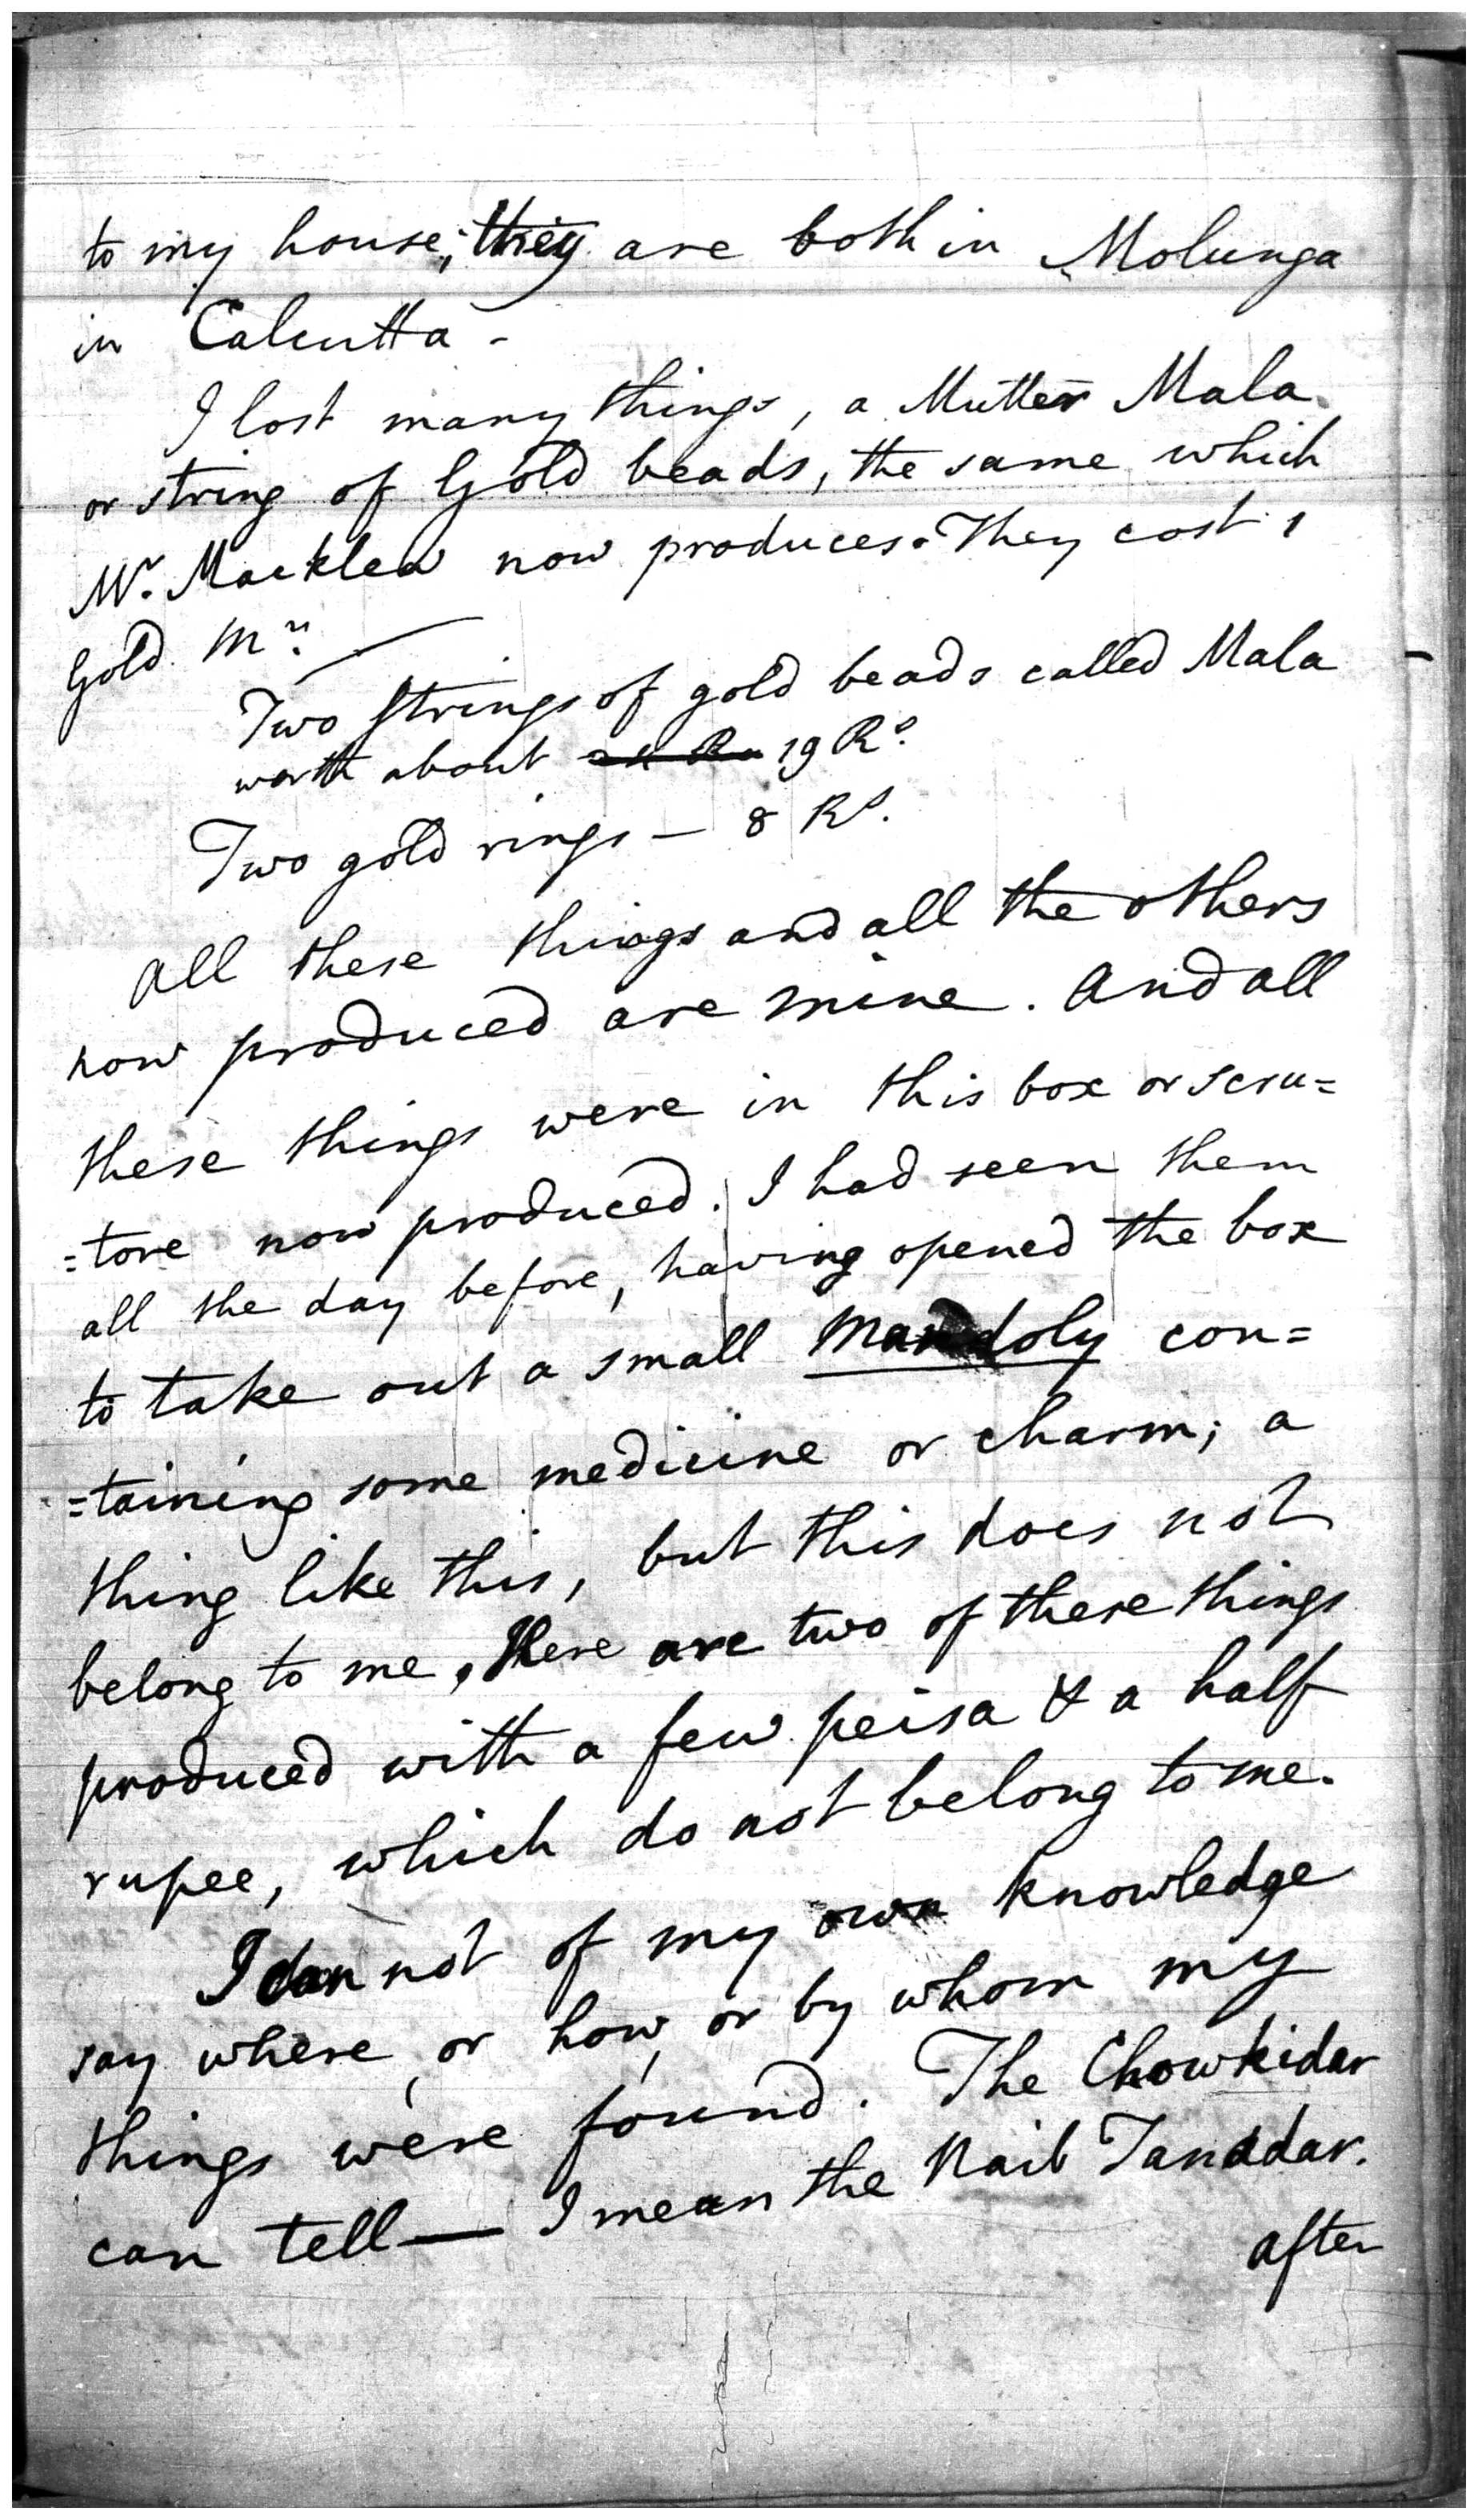 to my house; they are both in Molunga
in Calcutta -
I lost many things, a Mutter Mala
or string of Gold beads, the same which
Mr. Macklew now produces. They cost 1
Gold Mr. —
Two strings of gold beads called Mala
worth about 19 Rs.
Two gold rings — 8 Rs.
All these things and all the others
now produced are mine. And all
these things were in this box or scru=
=tore now produced. I had seen them
all the day before, having opened the box
to take out a small Mandoly con=
=taining some medicine or charm; a
thing like this, but this does not
belong to me. Here are two of these things
produced with a few peisa & a half
rupee, which do not belong to me.
I can not of my own knowledge
say where, or how, or by whom my
things were found. The Chowkidar
can tell — I mean the Naib Tanadar.
after